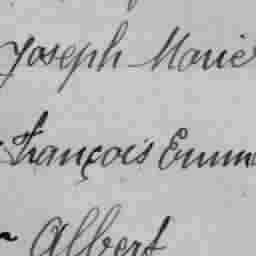 Joseph Marie
François Emm
Albert